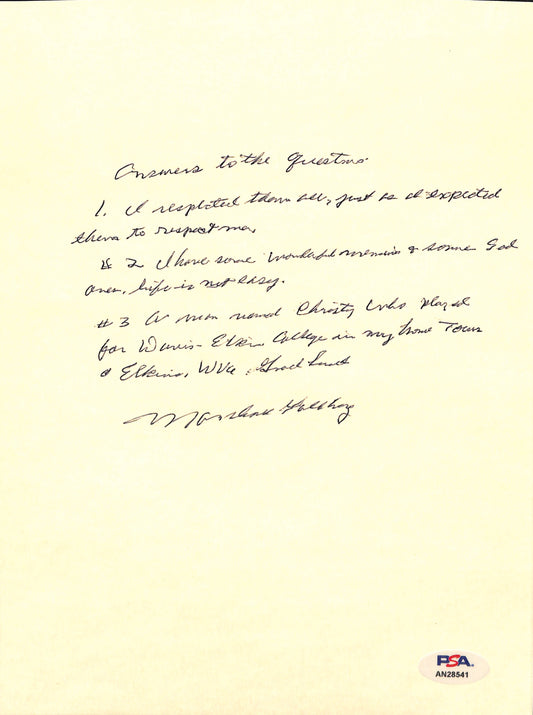 Answers to the Questions
1. I respected them all, just as I expected
them to respect me,
# 2 I have some wonderful memories & some sad
ones, life is not easy.
#3 A man named Christy who played
for Davis-Elkins College in my home Town
of Elkins, WVa, Good Luck
Marshall Goldberg
PSA
AN28541